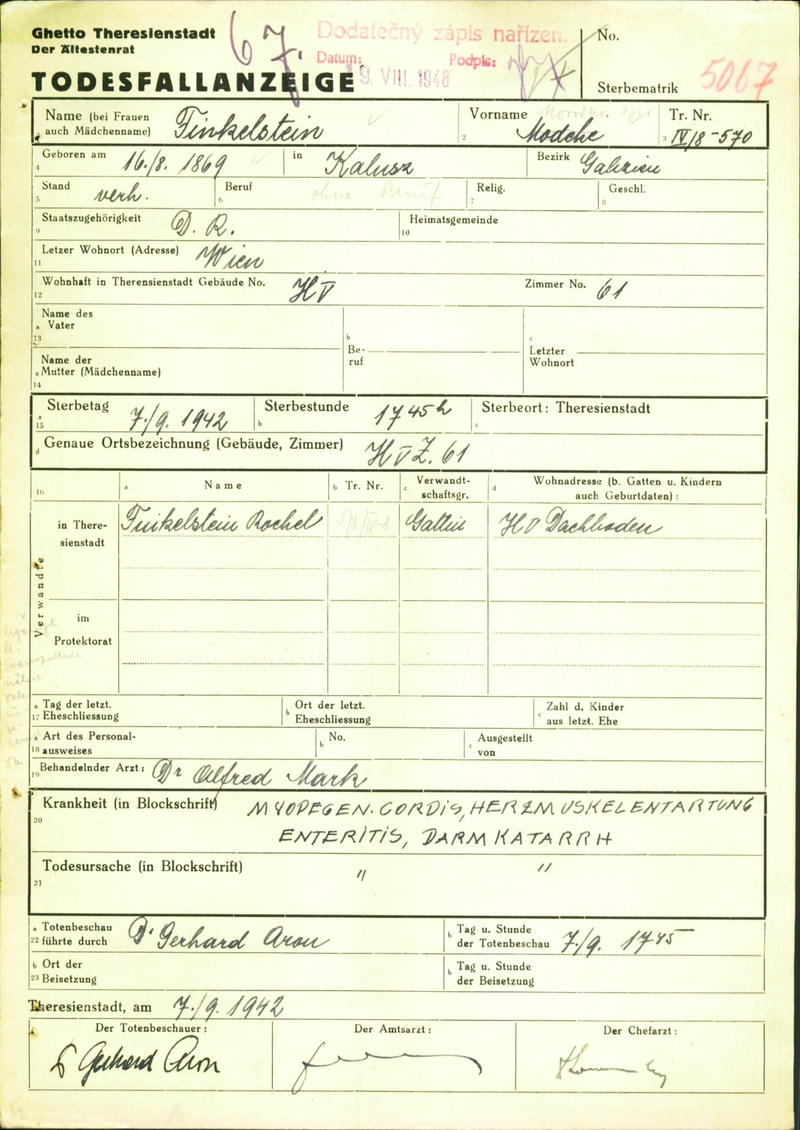 Ghetto Theresienstadt
Der Ältestenrat
67.
Dodatečný zápis nařízen.
Datum: 9 VIII 1948 Podpis:
No.
TODESFALLANZEIGE
Sterbematrik 5067
Name (bei Frauen auch Mädchenname) Finkelstein
Vorname Modche
Tr. Nr. IV/8-570
Geboren am 16./8. 1869 in Kalusz Bezirk Galizien
Stand verh. Beruf ohne Beruf Relig. Geschl.
Staatszugehörigkeit D. R. Heimatsgemeinde
Letzer Wohnort (Adresse) Wien
Wohnhaft in Theresienstadt Gebäude No. H V Zimmer No. 61
Name des Vater
Beruf
Letzter Wohnort
Name der Mutter (Mädchenname)
Sterbetag 7./9. 1942 Sterbestunde 17 45 h Sterbeort: Theresienstadt
Genaue Ortsbezeichnung (Gebäude, Zimmer) H V Z. 61
Name Tr. Nr. Verwandtschaftsgr. Wohnadresse (b. Gatten u. Kindern auch Geburtdaten):
Verwandte
in Theresienstadt Finkelstein Rochel Gattin H V Dachboden
im Protektorat
Tag der letzt. Eheschliessung Ort der letzt. Eheschliessung Zahl d. Kinder aus letzt. Ehe
Art des Personalausweises No. Ausgestellt von
Behandelnder Arzt: Dr Alfred Mark
Krankheit (in Blockschrift) MYODEGEN. CORDIS, HERZMUSKELENTARTUNG
ENTERITIS, DARMKATARRH
Todesursache (in Blockschrift) " "
Totenbeschau führte durch Dr Gerhard Aron Tag u. Stunde der Totenbeschau 7./9. 17 45
Ort der Beisetzung Tag u. Stunde der Beisetzung
Theresienstadt, am 7./9. 1942
Der Totenbeschauer: Der Amtsarzt: Der Chefarzt:
Dr Gerhard Aron